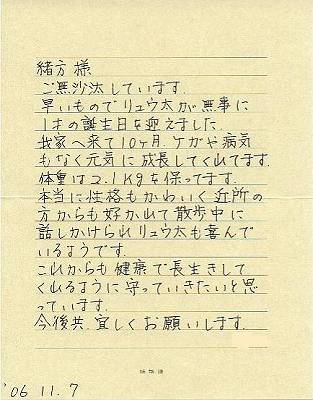 緒方様
ご無沙汰しています.
早いものでリュウ太が無事に
1才の誕生日を迎えました.
我家へ来て10ヶ月.ケガや病気
もなく元気に成長してくれてます.
体重は2.1kgを保ってます.
本当に性格もかわいく近所の
方からも好かれて散歩中に
話しかけられリュウ太も喜んで
いるようです.
これからも健康で長生きして
くれるように守っていきたいと思
っています.
今後共.宜しくお願いします.
'06 11.7